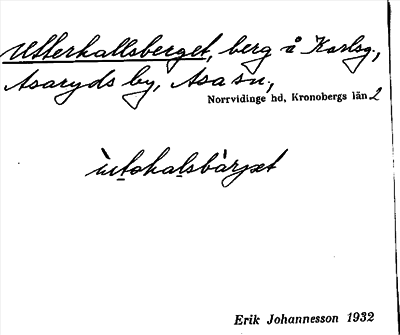 Utterkallsberget, berg å Karlsg.,
Asaryds by, Asa sn.,
Norrvidinge hd, Kronobergs län 2
Erik Johannesson 1932